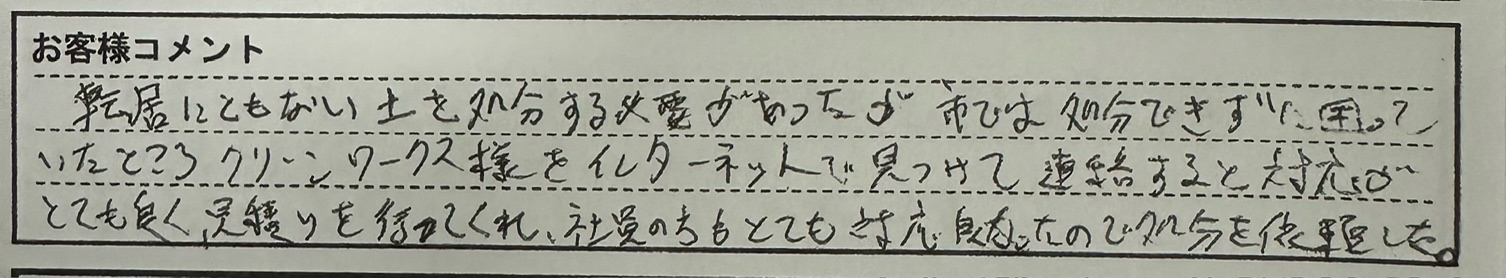 お客様コメント
転居にともない土を処分する必要があったが市では処分できずに困って
いたところクリーンワークス様をインターネットで見つけて連絡すると対応が
とても良く、見積りを行ってくれ、社員の方もとても対応良かったので処分を依頼した。